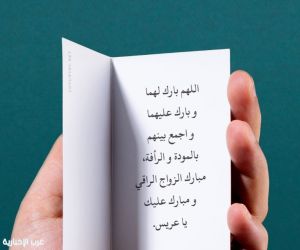 اللهم بارك لهما
و بارك عليهما
و اجمع بينهم
بالمودة و الرأفة،
مبارك الزواج الراقي
و مبارك عليك
يا عريس.
عرب الإخبارية